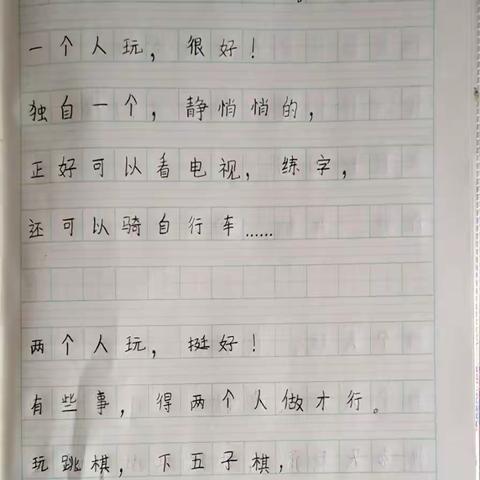 一个人玩，很好！
独自一个，静悄悄的，
正好可以看电视，练字，
还可以骑自行车……
两个人玩，挺好！
有些事，得两个人做才行。
玩跳棋，下五子棋，